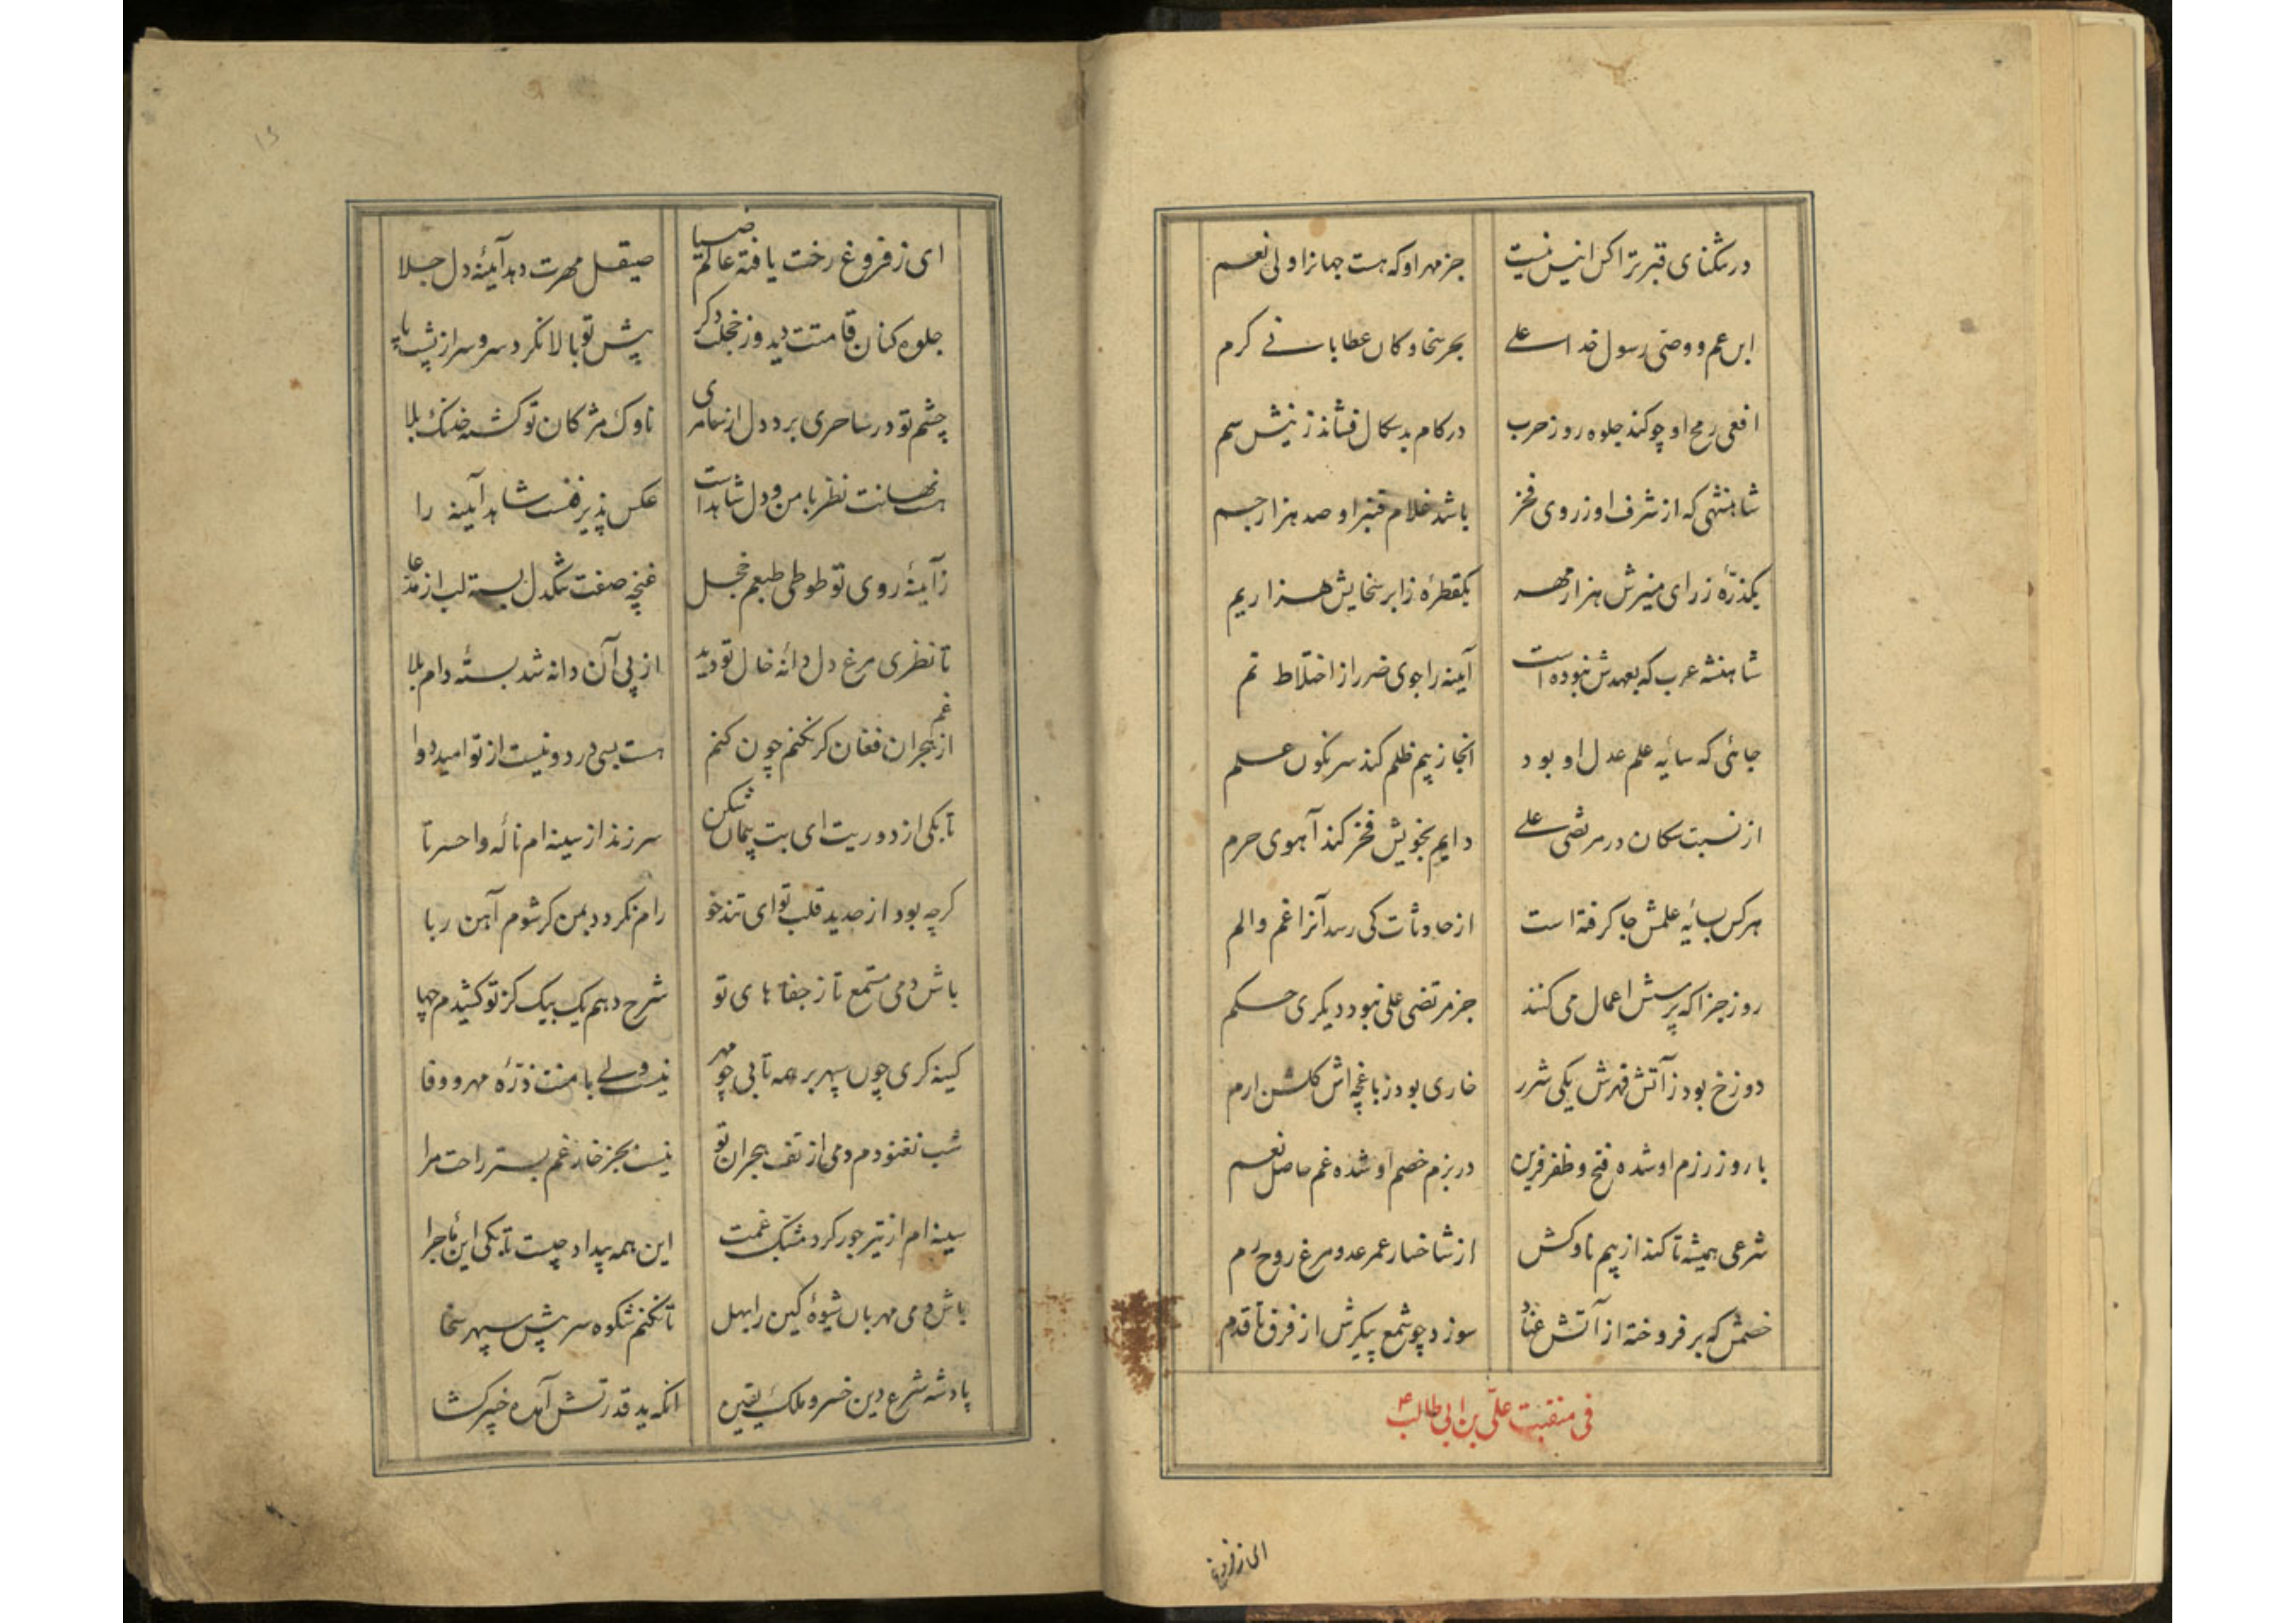 در تنگنای قبر ترا کس انیس نیست جز مهر او که هست جهانرا ولی نعم
ابن عم و وصی رسول خدا علی بحر سخا و کان عطا بانی کرم
افعی رمح او چو کند جلوه روز حرب در کام بدسکال فشاند ز نیش سم
شاهنشهی که از شرف او ز روی فخر باشد غلام قنبر او صد هزار جم
یکذرّهٔ ز رای منیرش هزار مهر یکقطرهٔ ز ابر سخایش هزار یم
شاهنشه عرب که بعهدش نبوده است آینه را جوی ضرر از اختلاط نم
جائی که سایهٔ علم عدل او بود آنجا ز بیم ظلم کند سرنگون علم
از نسبت سکان در مرتضی علی دایم بخویش فخر کند آهوی حرم
هر کس بسایهٔ علمش جا کرفته است از حادثات کی رسد آنرا غم و الم
روز جزا که پرسش اعمال می کنند جز مرتضی علی نبود دیکری حکم
دوزخ بود ز آتش قهرش یکی شرر خاری بود ز باغچه اش کلشن ارم
با روز رزم او شده فتح و ظفر قرین در بزم خصم او شده غم حاصل نعم
شرعی همیشه تا کند از بیم ناوکش از شاخسار عمر عدو مرغ روح رم
خصمش که بر فروخته از آتش عناد سوزد چو شمع پیکرش از فرق تا قدم
فی منقبت علیّ بن ابی طالب ع
ای ز فروغ
ای ز فروغ رخت یافته عالم ضیا صیقل مهرت دهد آینهٔ دل جلا
جلوه کنان قامتت دید و ز خجلت دکر پیش تو بالا نکرد سرو سر از پشت پا
چشم تو در ساحری برد دل از سامری ناوک مژکان تو کشته خدنک بلا
هست نهانت نظر با من و دل شاهد است عکس پذیر فست شاهد آینه را
ز آینهٔ روی تو طوطی طبعم خجل غنچه صفت تنکدل بسته لب از مدعا
تا نظری مرغ دل دانهٔ خال تو دید از پی آن دانه شد بستهٔ دام بلا
از غم هجران فغان کر نکنم چون کنم هست بسی درد و نیست از تو امید دوا
تا بکی از دوریت ای بت پیمان شکن سر زند از سینه ام نالهٔ وا حسرتا
کرچه بود از حدید قلب تو ای تندخو رام نکردد بمن کر شوم آهن ربا
باش دمی مستمع تا ز جفاهای تو شرح دهم یک بیک کز تو کشیدم چها
کینه کری چون سپهر بر همه تابی چو مهر نیست ولی با منت ذرّهٔ مهر و وفا
شب نغنودم دمی از تف هجران تو نیست بجز خار غم بستر راحت مرا
سینه ام از تیر جور کرد مشبک غمت این همه بیداد چیست تا بکی این ماجرا
باش دمی مهربان شیوهٔ کین را بهل تا نکنم شکوه سر پیش سپهر سخا
پادشه شرع دین خسرو ملک یقین آنکه ید قدرتش آمده خیبر کشا